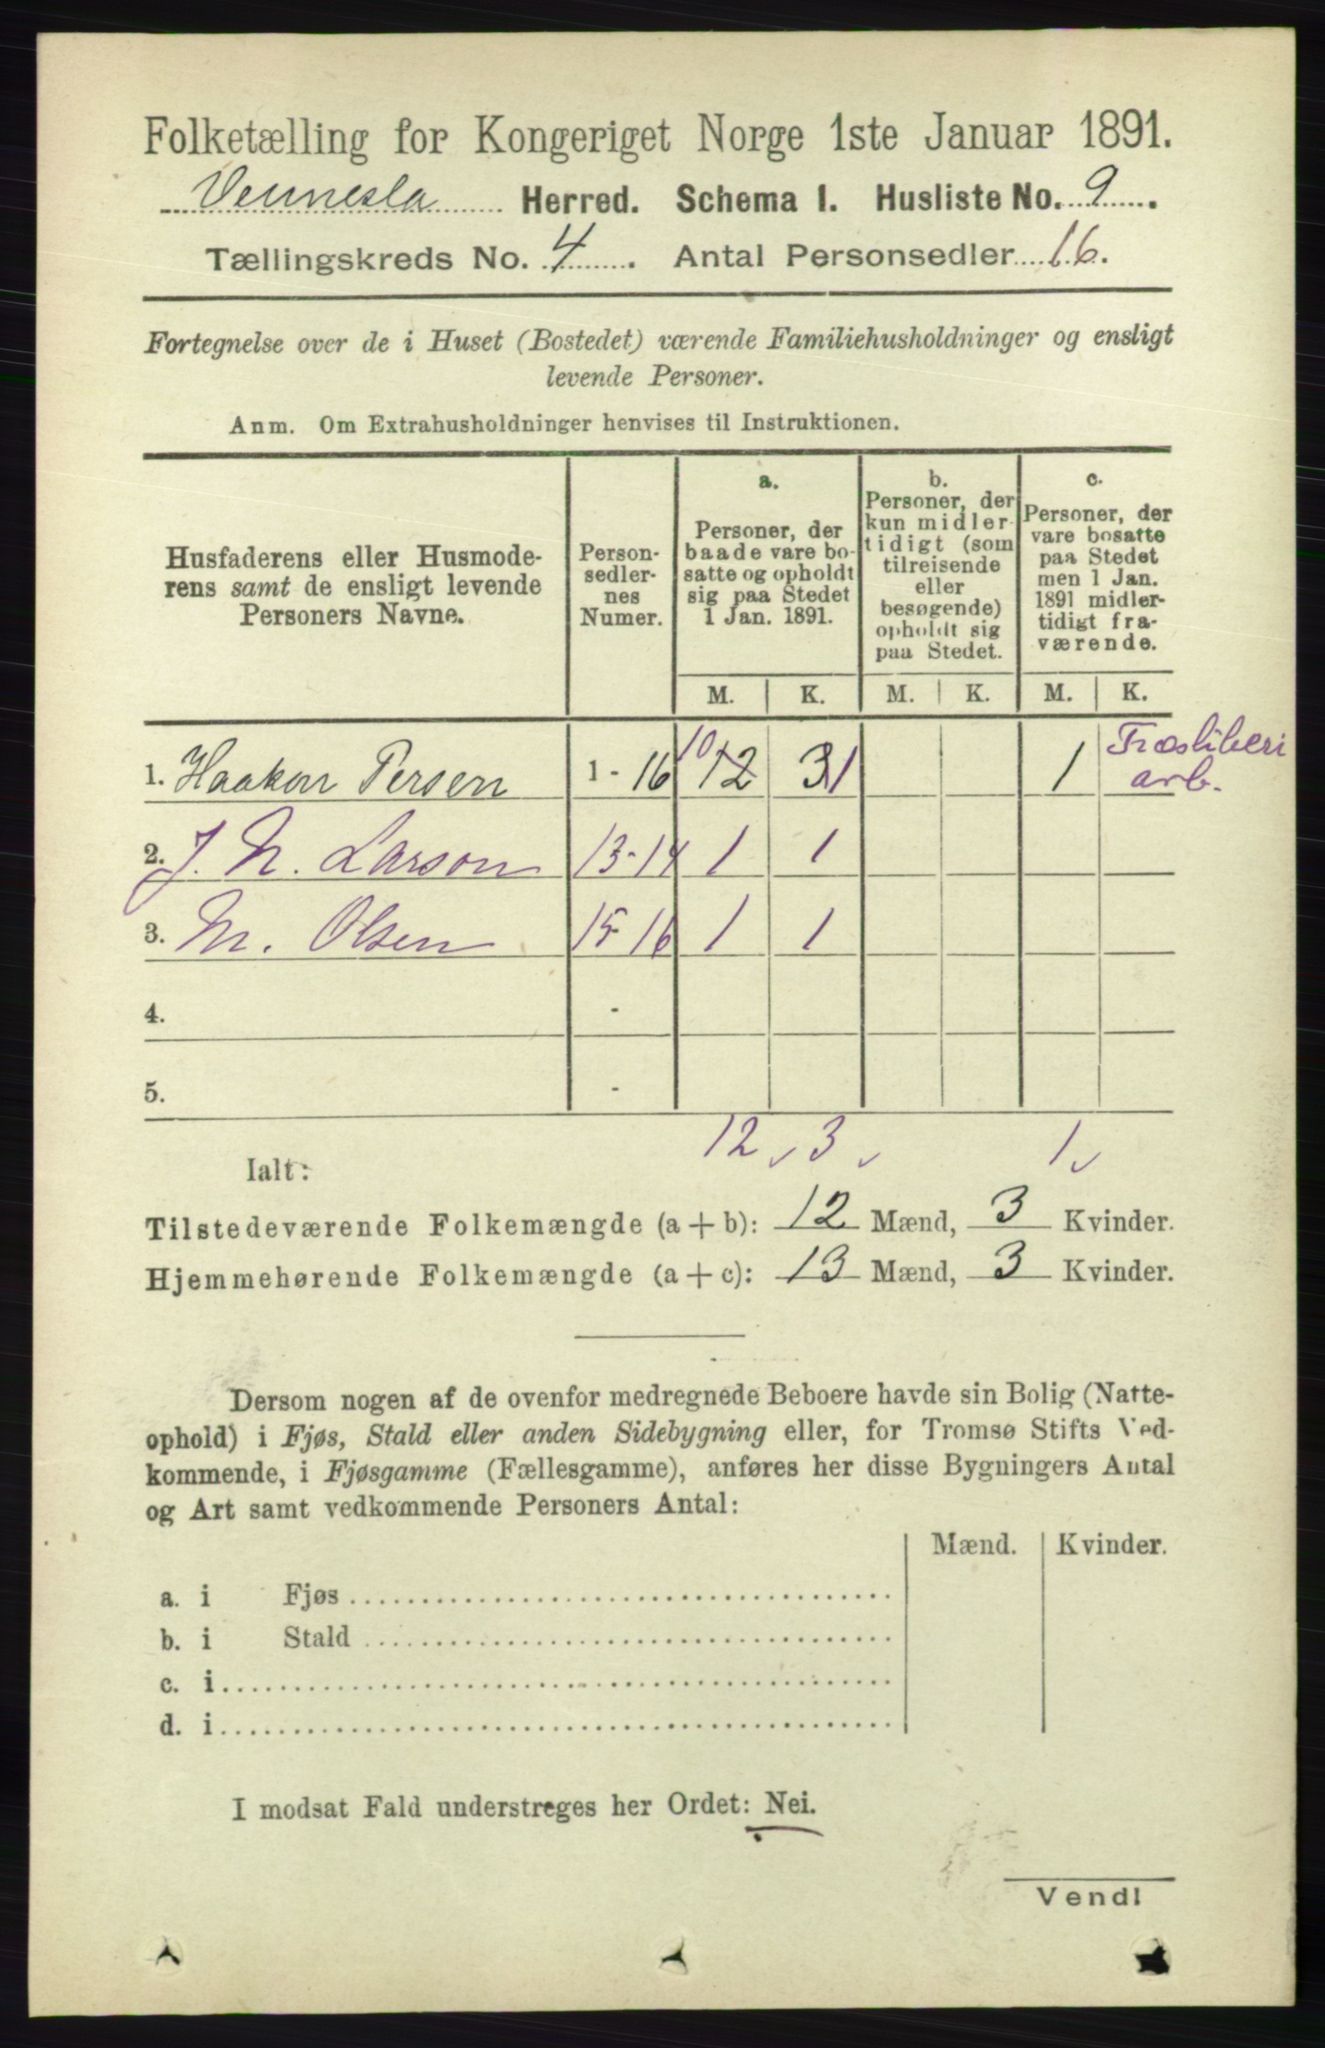 Folketælling for Kongeriget Norge 1ste Januar 1891.
Vennesla Herred. Schema I. Husliste No. 9.
Tællingskreds No. 4. Antal Personsedler 16.
Fortegnelse over de i Huset (Bostedet) værende Familiehusholdninger og ensligt
levende Personer.
Anm. Om Extrahusholdninger henvises til Instruktionen.
Husfaderens eller Husmode-
rens samt de ensligt levende
Personers Navne.
Person-
sedler-
nes
Numer.
a.
Personer, der
baade vare bo-
satte og opholdt
sig paa Stedet
1 Jan. 1891.
b.
Personer, der
kun midler-
tidigt (som
tilreisende
eller
besøgende)
opholdt sig
paa Stedet.
c.
Personer, der
vare bosatte
paa Stedet
men 1 Jan.
1891 midler-
tidigt fra-
værende.
M. K. M. K. M. K.
1. Haakon Persen 1 - 16 10 12 3 1 1 Træsliberi
arb.
2. J. N. Larson 13-14 1 1
3. M. Olsen 15-16 1 1
4. -
5. -
Ialt: 12 3 1
Tilstedeværende Folkemængde (a + b): 12 Mænd, 3 Kvinder.
Hjemmehørende Folkemængde (a + c): 13 Mænd, 3 Kvinder.
Dersom nogen af de ovenfor medregnede Beboere havde sin Bolig (Natte-
ophold) i Fjøs, Stald eller anden Sidebygning eller, for Tromsø Stifts Ved-
kommende, i Fjøsgamme (Fællesgamme), anføres her disse Bygningers Antal
og Art samt vedkommende Personers Antal:
Mænd. Kvinder.
a. i Fjøs
b. i Stald
c. i
d. i
I modsat Fald understreges her Ordet: Nei.
Vend!